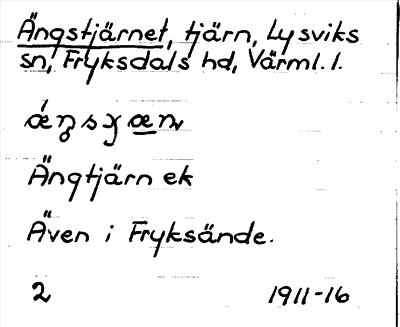 Ängstjärnet, tjärn, Lysviks
sn, Fryksdals hd, Värml. l.
Ängtjärn ek
Även i Fryksände.
2 1911-16